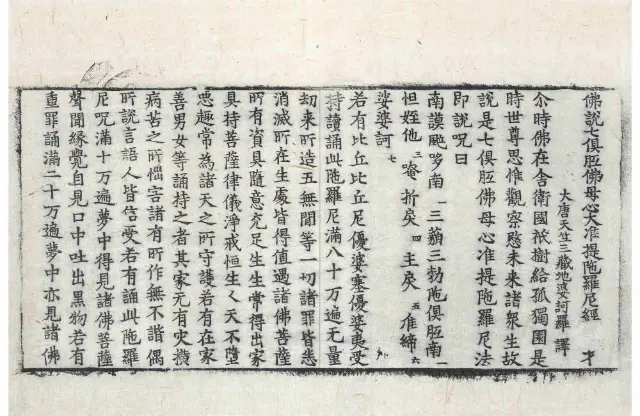 佛說七俱胝佛母心大准提陁羅尼經
大唐天竺三藏地婆訶羅 譯
尒時佛在舍衛國祇樹給孤獨園是
時世尊思惟觀察愍未來諸衆生故
說是七俱胝佛母心准提陁羅尼法
即說呪曰
南謨颯哆南 一 三藐三勃陁俱胝南 二
怛姪他 三 唵 折戾 四 主戾 五 准締 六
娑婆訶 七
若有比丘比丘尼優婆塞優婆夷受
持讀誦此陁羅尼滿八十万遍無量
劫來所造五無間等一切諸罪皆悉
消滅所在生處皆得值遇諸佛菩薩
所有資具隨意充足生生常得出家
具持菩薩律儀淨戒恒生人天不墮
惡趣常為諸天之所守護若有在家
善男女等誦持之者其家无有灾橫
病苦之所惱害諸有所作無不諧偶
所說言語人皆信受若有誦此陁羅
尼呪滿十万遍夢中得見諸佛菩薩
聲聞緣覺自見口中吐出黑物若有
重罪誦滿二十万遍夢中亦見諸佛